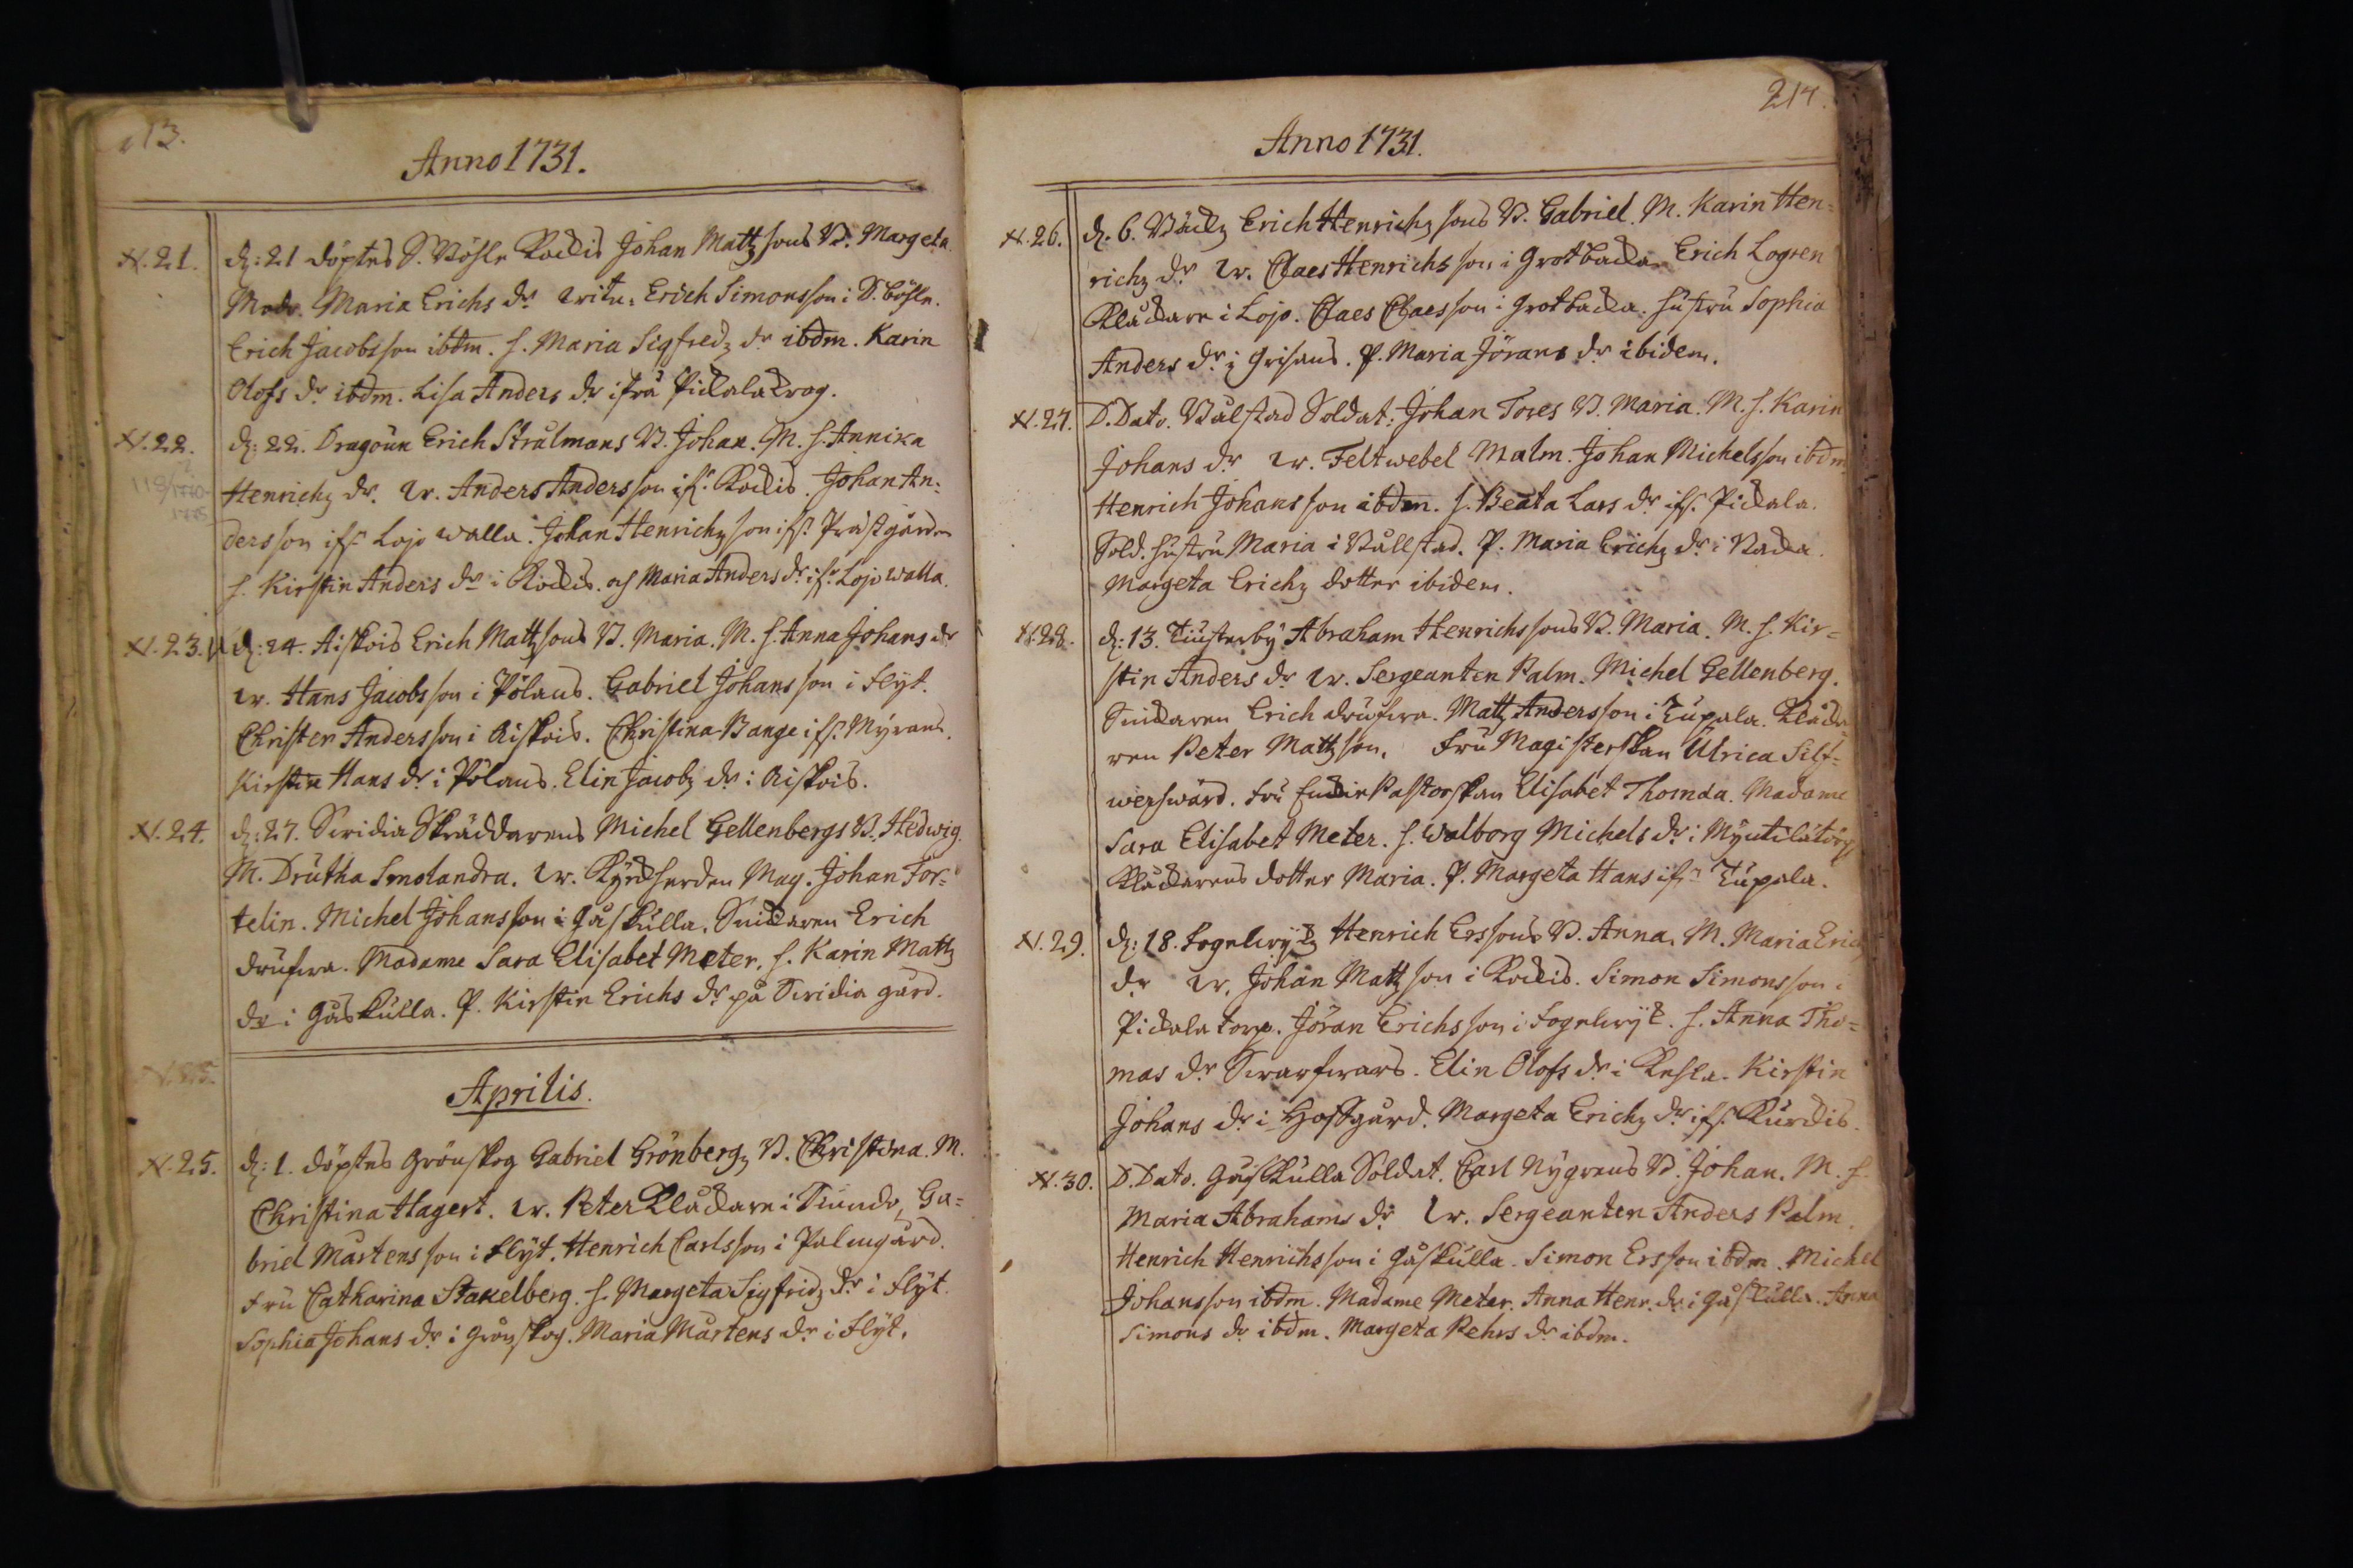 213.
Anno 1731.
N. 21. d: 21 döptes S. Böhle Kockis Johan Mattz sons B. Margeta
Modr. Maria Erichs dr witn: Erich Simonsson i S. böhle.
Erich Jacobsson ibdm. h. Maria Sigfredz dr ibdm. Karin
Olofs dr ibdm. Lisa Anders dr ifrå Pickala krog.
N. 22. d: 22. Dragoun Erich Strålmans B. Johan. M. h. Annika
Henrichz dr. w. Anders Andersson ifr. Kockis. Johan An:
dersson ifr Lojo walla. Johan Henrichz son ifr. Prästgården
h. Kirstin Anders dr i Kockis. och Maria Anders dr ifr. Lojo walla.
N. 23. d: 24. Aiskois Erich Mattz sons B. Maria. M. h. Anna Johans dr
w. Hans Jacobsson i Pölans. Gabriel Johansson i Flyt.
Christer Andersson i Aiskois. Christina Bange ifr. Myrans.
Kirstin Hans dr i Pölans. Elin Jacobz dr i Aiskois.
N. 24. d: 27. Svidia Skräddarens Michel Gellenbergs B. Hedwig.
M. Drutha Smolandra. w. Kyrckherden Mag. Johan For:
telin. Michel Johansson i Gåskulla. Snickaren Erich
drufwa. Madame Sara Elisabet Meter. h. Karin Mattz
dr i Gåskulla. P. Kirstin Erichs dr på Svidia gård.
Aprilis.
N. 25. d: 1. döptes Grönskog Gabriel Grönbergz B. Christina. M.
Christina Hagert. w. Peter Klåckare i Siundo, Ga=
briel Mårtensson i Flyt. Henrich Carlsson i Palmgård.
Fru Catharina Stakelberg. h. Margeta Sigfridz dr i Flyt.
Sophia Johans dr i Grönskog. Maria Mårtens dr i Flyt.
214.
Anno 1731.
N. 26. d: 6. Bäckz Erich Henrichz sons B. Gabriel. M. Karin Hen=
richz dr w. Claes Henrichsson i Grotbacka Erich Logren
Klåckare i Lojo. Claes Claesson i Grotbacka. hustru Sophia
Anders dr i Grisans. P. Maria Jörans dr ibidem.
N. 27. D. Dato. Bålstad Soldat: Johan Tores B. Maria. M. h. Karin
Johans dr w. Feltwebel Malm. Johan Michelsson ibdm
Henrich Johansson ibdm. h. Beata Lars dr ifr. Pickala.
Sold. hustru Maria i Bållstad. P. Maria Erichz dr i Backa.
Margeta Erichz dotter ibidem.
N. 28. d: 13. Tiusterby Abraham Henrichssons B. Maria. M. h. Kir=
stin Anders dr w. Sergeanten Palm. Michel Gellenberg.
Snickaren Erich drufwa. Mattz Andersson i Tupala. Klåcka
ren Peter Mattzson. Fru Magisterskan Ulrica Silf=
werswärd. Fru Pastorskan Elisabet Thornda. Madame
Sara Elisabet Meter. h. Walborg Michels dr i
Klåckarens dotter Maria. P. Margeta Hans ifr Tupala.
N. 29. d: 18. Fogelwykz Henrich Erssons B. Anna. M. Maria Erich
dr w. Johan Mattzson i Kockis. Simon Simonsson i
Pickala torp. Jöran Erichsson i Fogelwyk. h. Anna Tho=
mas dr Swarfwars. Elin Olofs dr i Kehla. Kirstin
Johans dr i Hofgård. Margeta Erichz dr ifr. Kurckis.
N. 30. D. Dato. Gåskulla Soldat. Carl Nygrens B. Johan. M. h
Maria Abrahams dr w. Sergeanten Anders Palm.
Henrich Henrichsson i Gåskulla. Simon Ersson ibdm. Michel
Johansson ibdm. Madame Meter. Anna Henr. dr i Gåskulla. Anna
Simons dr ibdm. Margeta Pehrs dr ibdm.